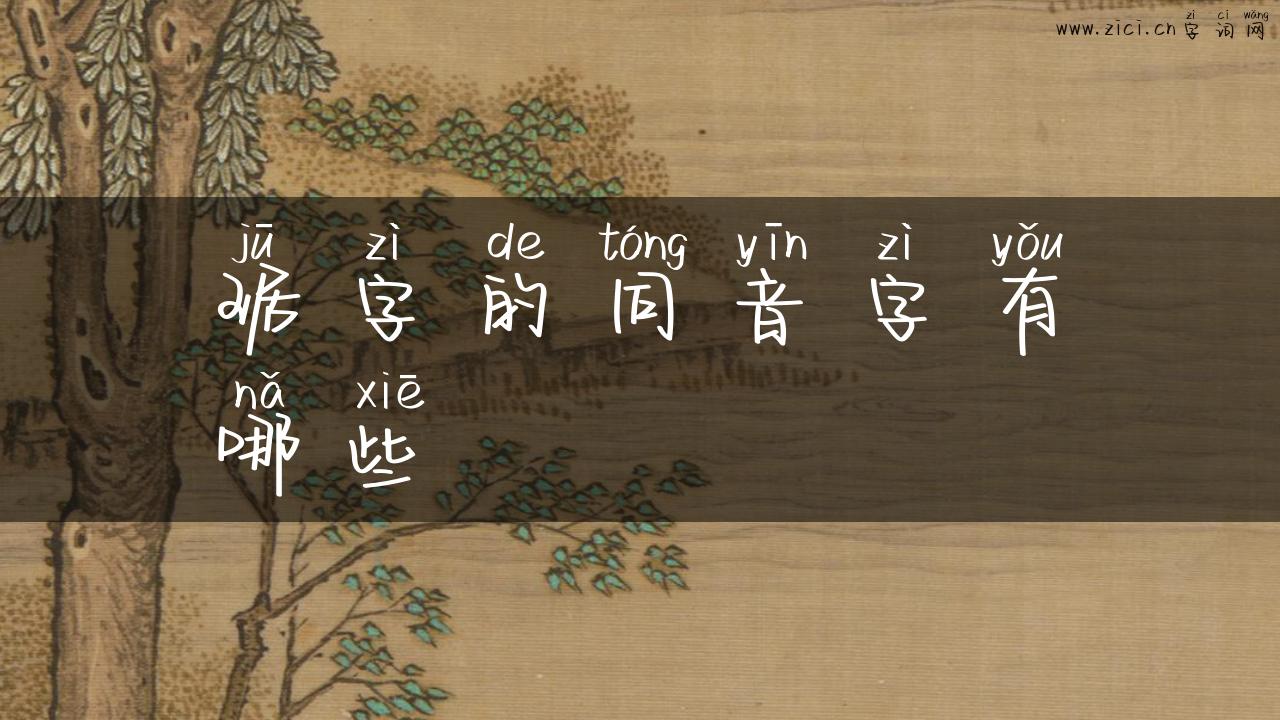 www.zici.cn zì cí wǎng
字词网
jū zì de tóng yīn zì yǒu
字的同音字有
nǎ xiē
哪些